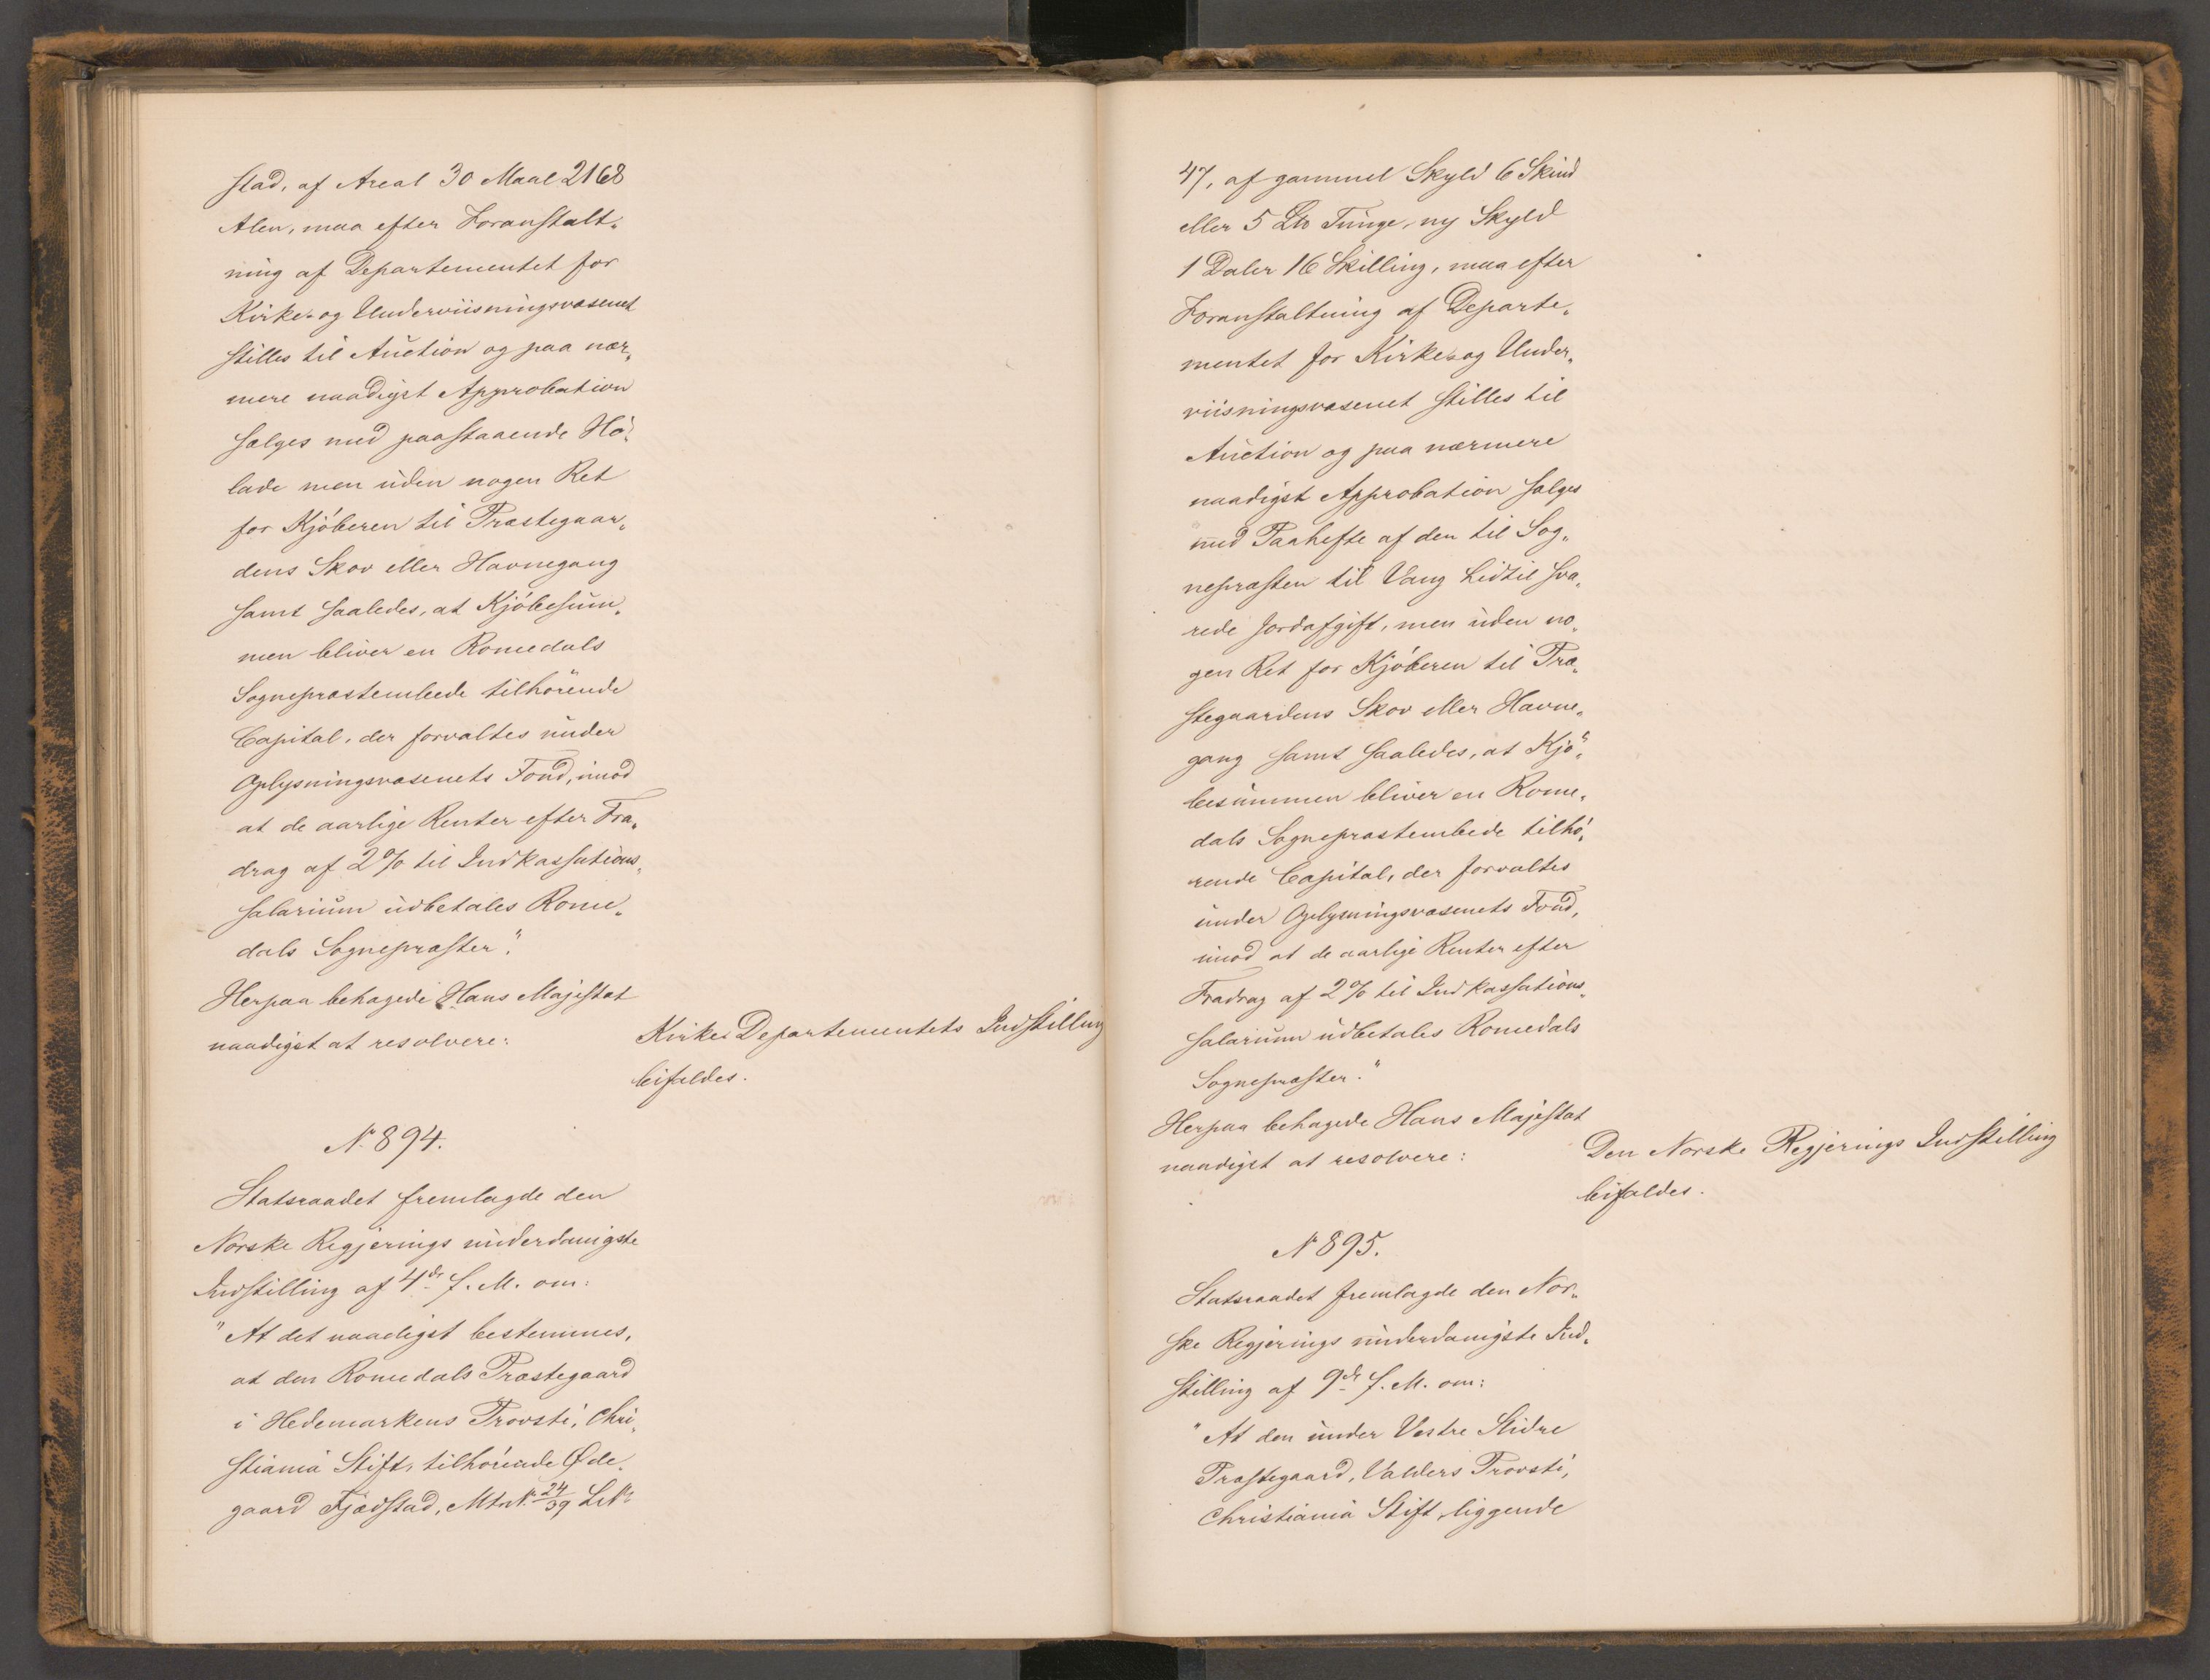 stad, af Areal 30 Maal 2168
Alen, maa efter Foranstalt„
ning af Departementet for
Kirke- og Underviisningsvæsenet
stilles til Auction og paa nær„
mere naadigst Approbation
sælges med paastaaende Hö„
lade men uden nogen Ret
for Kjöberen til Præstegaar„
dens Skov eller Havnegang
samt saaledes, at Kjöbesum„
men bliver en Romedals
Sognepræstembede tilhörende
Capital, der forvaltes under
Oplysningsvæsenets Fond, imod
at de aarlige Renter efter Fra„
drag af 2 % til Indkassations„
salarium udbetales Rome„
dals Sognepræster".
Herpaa behagede Hans Majestæt
naadigst at resolvere:
Kirke-Departementets Indstilling
bifaldes.
N. 894.
Statsraadet fremlagde den
Norske Regjerings underdanigste
Indstilling af 4de f. M. om:
"At det naadigst bestemmes,
at den Romedals Præstegaard
i Hedemarkens Provsti, Chri„
stiania Stift, tilhörende Øde„
gaard Fjædstad, Mtr. N. 24/39 L. N.
47, af gammel Skyld 6 Skind
eller 5 Lb Tunge, ny Skyld
1 Daler 16 Skilling, maa efter
Foranstaltning af Departe„
mentet for Kirke- og Under„
viisningsvæsenet stilles til
Auction og paa nærmere
naadigst Approbation sælges
med Paahefte af den til Sog„
nepræsten til Vang hidtil sva„
rede Jordafgift, men uden no„
gen Ret for Kjöberen til Præ„
stegaardens Skov eller Havne„
gang samt saaledes, at Kjö„
besummen bliver en Rome„
dals Sognepræstembede tilhö„
rende Capital, der forvaltes
under Oplysningsvæsenets Fond,
imod at de aarlige Renter efter
Fradrag af 2 % til Indkassations„
salarium udbetales Romedals
Sognepræster."
Herpaa behagede Hans Majestæt
naadigst at resolvere:
Den Norske Regjerings Indstilling
bifaldes.
N 895.
Statsraadet fremlagde den Nor„
ske Regjerings underdanigste Ind„
stilling af 9de f. M. om:
"At den under Vestre Slidre
Præstegaard, Valders Provsti,
Christiania Stift, liggende